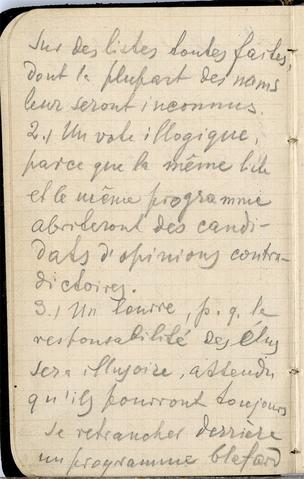 sur des listes toutes faites,
dont la plupart des noms
leur seront inconnus.
2.) Un vote illogique,
parce que la même liste
et le même programme
abriteront des candi-
dats d'opinions contra-
dictoires.
3.) Un p. q. la
responsabilité des élus
sera illusoire, attendu
qu'ils pourront toujours
se retrancher derrière
un programme blafard